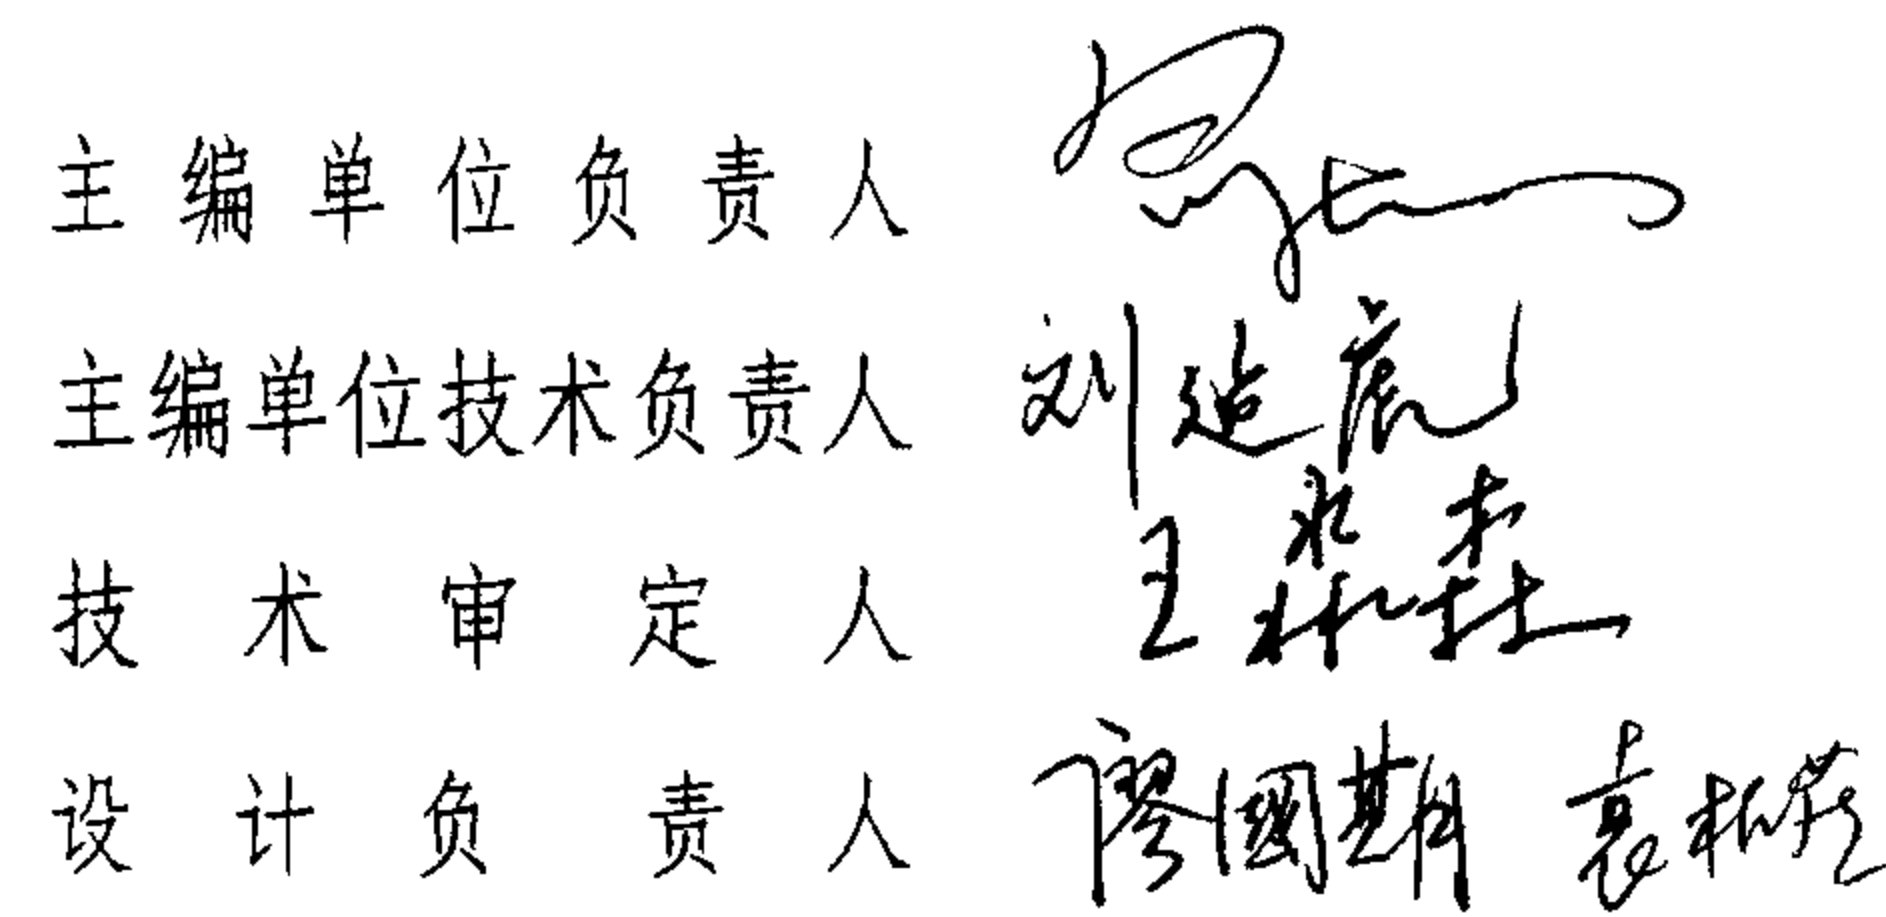 主编单位负责人
主编单位技术负责人 刘
技术审定人 王 森
设计负责人 廖國期 袁